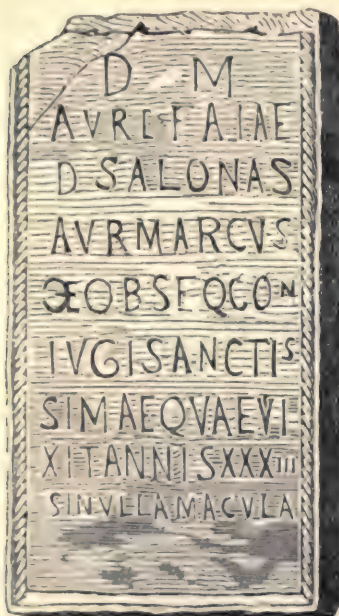 D M
AVR F AIAE
D SALONAS
AVR MARCVS
Ɔ OBSEQ CON
IVGI SANCTIS
SIMAE QVAE VI
XIT ANNIS XXXIII
SIN VLLA MACVLA